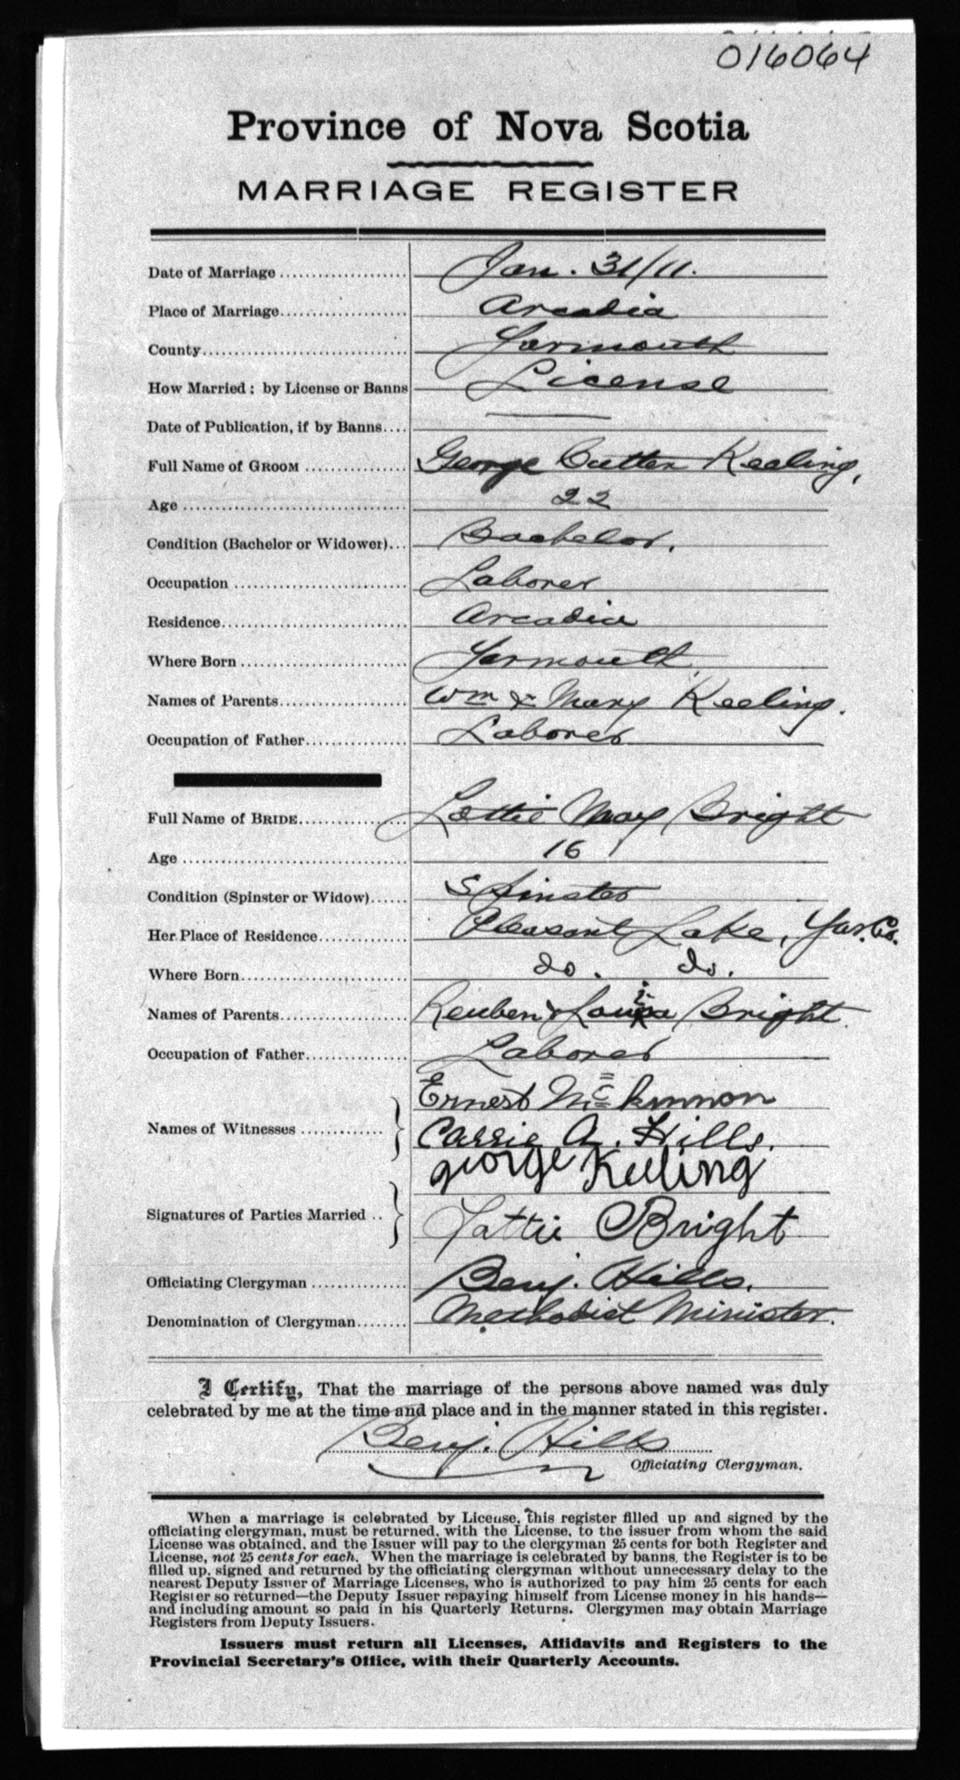 016064
Province of Nova Scotia
MARRIAGE REGISTER
Date of Marriage .................... Jan. 31/11.
Place of Marriage.................... Arcadia
County................................ Yarmouth
How Married: by License or Banns License
Date of Publication, if by Banns.... ———
Full Name of GROOM ................ George Cutten Keeling,
Age ................................... 22
Condition (Bachelor or Widower)... Bachelor.
Occupation ........................... Laborer
Residence............................. Arcadia
Where Born .......................... Yarmouth
Names of Parents.................... Wm & Mary Keeling.
Occupation of Father................ Laborer
Full Name of BRIDE................. Lottie May Bright
Age ................................... 16
Condition (Spinster or Widow)...... Spinster
Her Place of Residence.............. Pleasant Lake, Yar. Co.
Where Born.......................... do. do.
Names of Parents.................... Reuben & Louisa Bright
Occupation of Father................ Laborer
Ernest McKinnon
Names of Witnesses ............. } Cassie A. Hills.
george Keeling
Signatures of Parties Married .. } Lottie Bright
Officiating Clergyman ............... Benj. Hills.
Denomination of Clergyman........ Methodist Minister.
I Certify, That the marriage of the persons above named was duly
celebrated by me at the time and place and in the manner stated in this register.
Benj. Hills
Officiating Clergyman.
When a marriage is celebrated by License, this register filled up and signed by the
officiating clergyman, must be returned, with the License, to the issuer from whom the said
License was obtained, and the Issuer will pay to the clergyman 25 cents for both Register and
License, not 25 cents for each. When the marriage is celebrated by banns, the Register is to be
filled up, signed and returned by the officiating clergyman without unnecessary delay to the
nearest Deputy Issuer of Marriage Licenses, who is authorized to pay him 25 cents for each
Register so returned—the Deputy Issuer repaying himself from License money in his hands—
and including amount so paid in his Quarterly Returns. Clergymen may obtain Marriage
Registers from Deputy Issuers.
Issuers must return all Licenses, Affidavits and Registers to the
Provincial Secretary's Office, with their Quarterly Accounts.